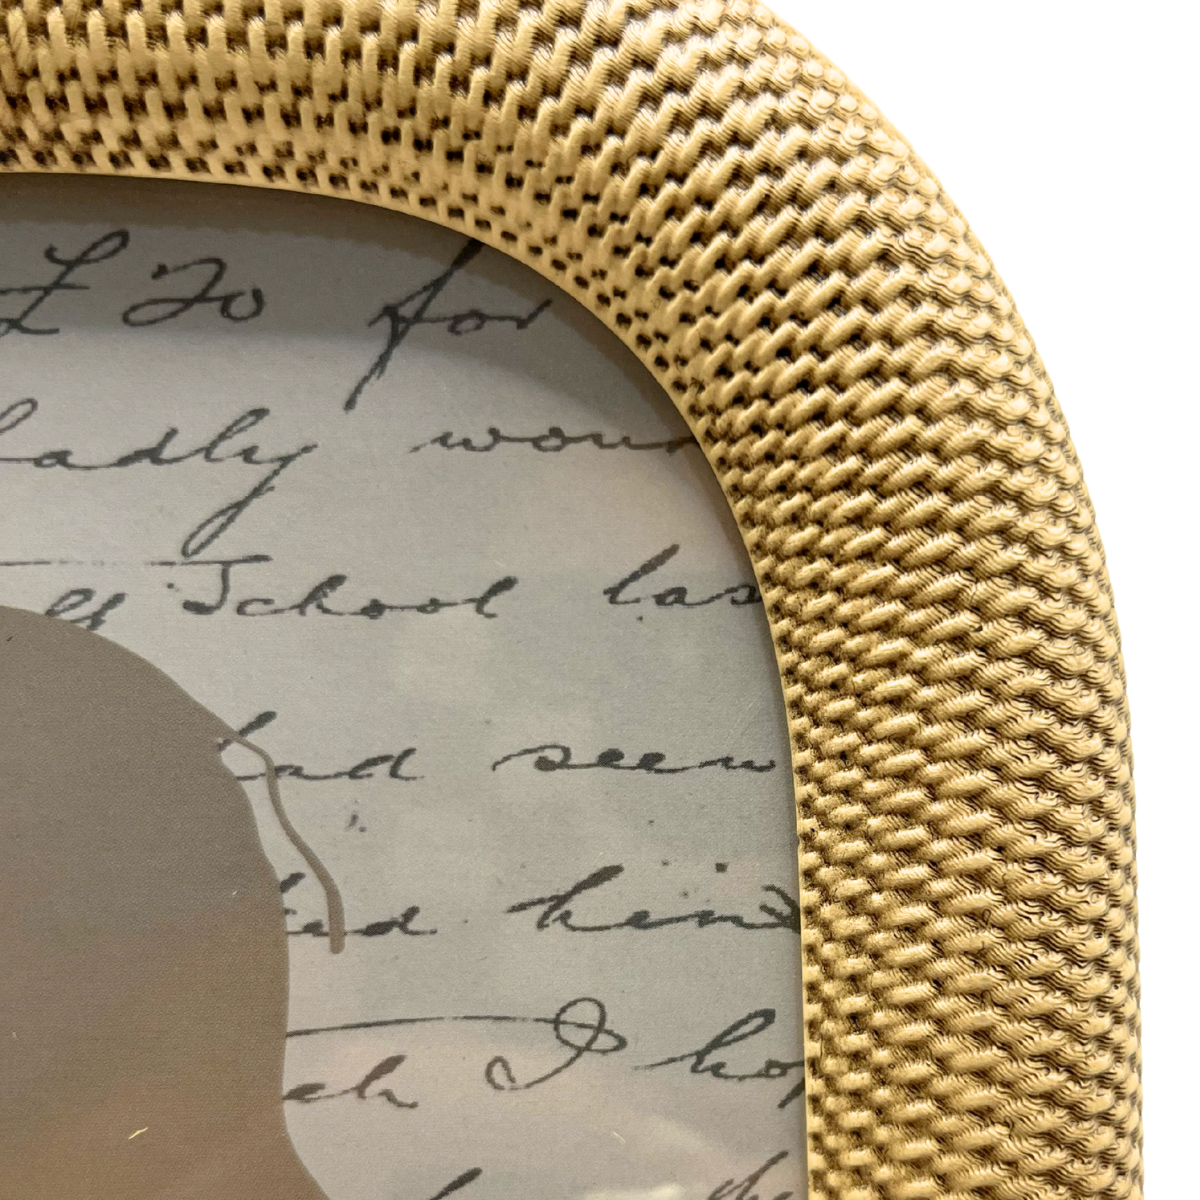 £ 20 for
badly woun
School las
had seen
ked hind
ch I hop